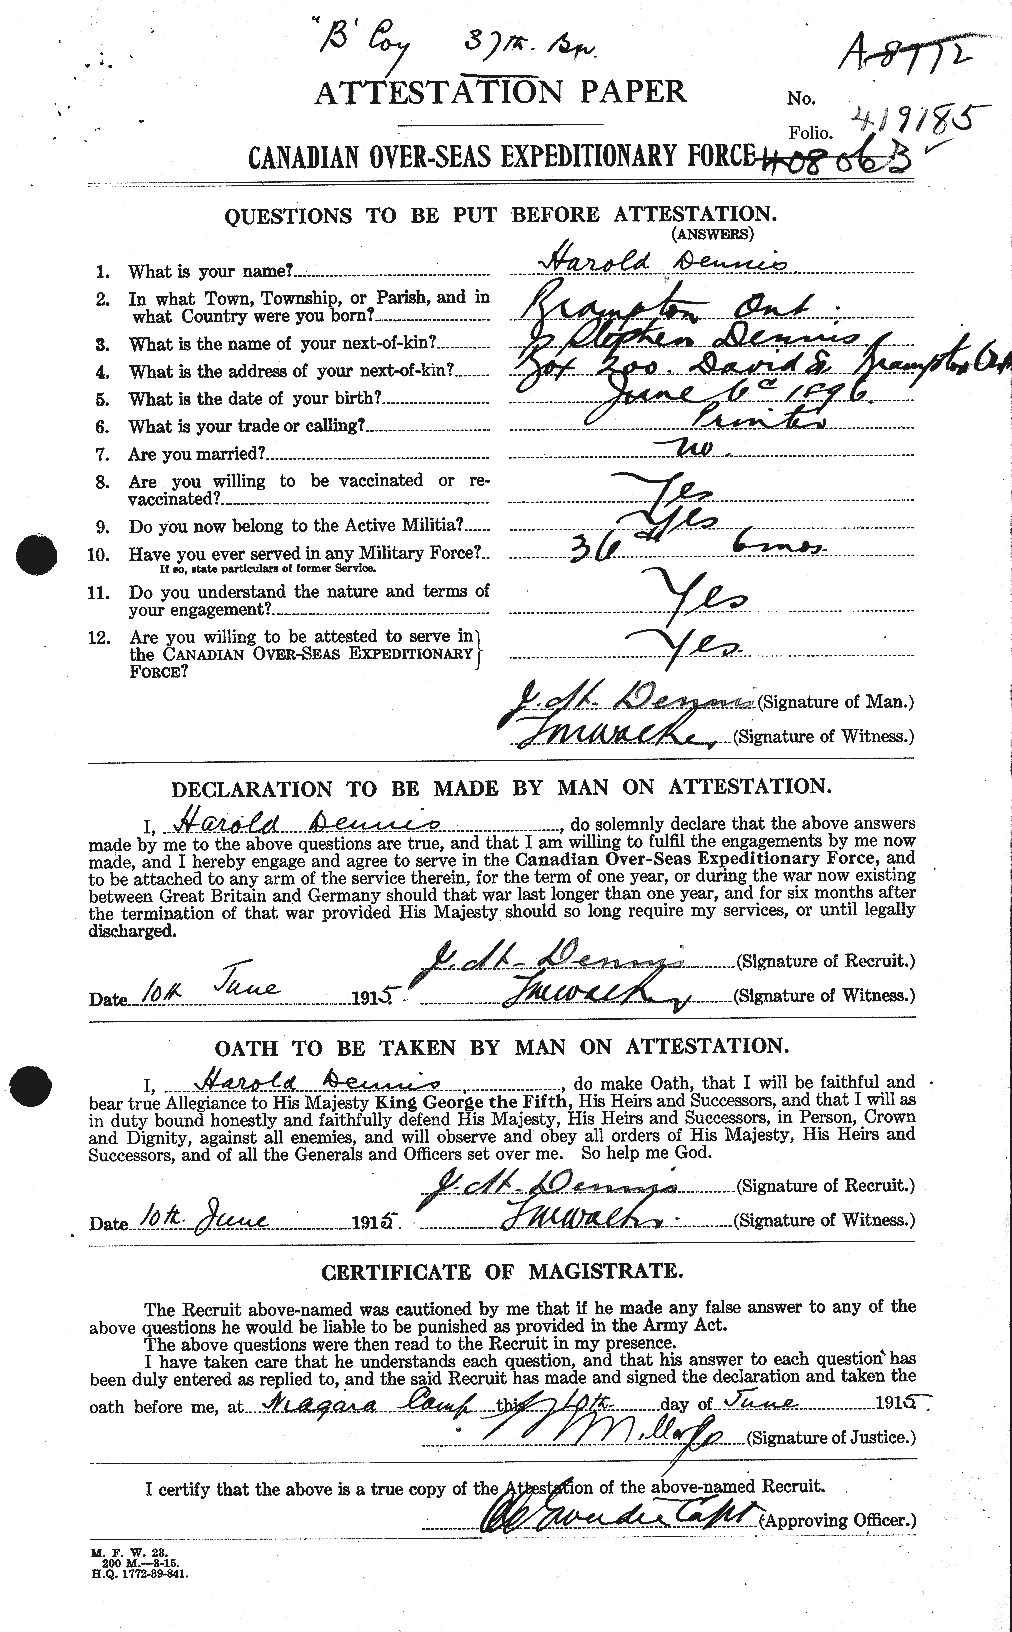 "B" Coy 37th. Bn.
A-8772
ATTESTATION PAPER
No.
419185
Folio.
CANADIAN OVER-SEAS EXPEDITIONARY FORCE
40806B
QUESTIONS TO BE PUT BEFORE ATTESTATION.
(ANSWERS)
1. What is your name? Harold Dennis
2. In what Town, Township, or Parish, and in
what Country were you born? Brampton Ont.
3. What is the name of your next-of-kin? Stephen Dennis
4. What is the address of your next-of-kin? Box 200. David St Brampton Ont
5. What is the date of your birth? June 6th 1896.
6. What is your trade or calling? Printer
7. Are you married? no.
8. Are you willing to be vaccinated or re-
vaccinated? Yes
9. Do you now belong to the Active Militia? Yes
10. Have you ever served in any Military Force? 36th 6 mos.
If so, state particulars of former Service.
11. Do you understand the nature and terms of
your engagement? Yes
12. Are you willing to be attested to serve in
the CANADIAN OVER-SEAS EXPEDITIONARY Yes.
FORCE?
J. H. Dennis (Signature of Man.)
(Signature of Witness.)
DECLARATION TO BE MADE BY MAN ON ATTESTATION.
I, Harold Dennis, do solemnly declare that the above answers
made by me to the above questions are true, and that I am willing to fulfil the engagements by me now
made, and I hereby engage and agree to serve in the Canadian Over-Seas Expeditionary Force, and
to be attached to any arm of the service therein, for the term of one year, or during the war now existing
between Great Britain and Germany should that war last longer than one year, and for six months after
the termination of that war provided His Majesty should so long require my services, or until legally
discharged.
J. H. Dennis (Signature of Recruit.)
Date 10th June 1915. (Signature of Witness.)
OATH TO BE TAKEN BY MAN ON ATTESTATION.
I, Harold Dennis, do make Oath, that I will be faithful and
bear true Allegiance to His Majesty King George the Fifth, His Heirs and Successors, and that I will as
in duty bound honestly and faithfully defend His Majesty, His Heirs and Successors, in Person, Crown
and Dignity, against all enemies, and will observe and obey all orders of His Majesty, His Heirs and
Successors, and of all the Generals and Officers set over me. So help me God.
J. H. Dennis (Signature of Recruit.)
Date 10th June 1915. (Signature of Witness.)
CERTIFICATE OF MAGISTRATE.
The Recruit above-named was cautioned by me that if he made any false answer to any of the
above questions he would be liable to be punished as provided in the Army Act.
The above questions were then read to the Recruit in my presence.
I have taken care that he understands each question, and that his answer to each question has
been duly entered as replied to, and the said Recruit has made and signed the declaration and taken the
oath before me, at Niagara Camp this 10th day of June 1915.
(Signature of Justice.)
I certify that the above is a true copy of the Attestation of the above-named Recruit.
Capt (Approving Officer.)
M. F. W. 23.
200 M.—3-15.
H.Q. 1772-39-841.